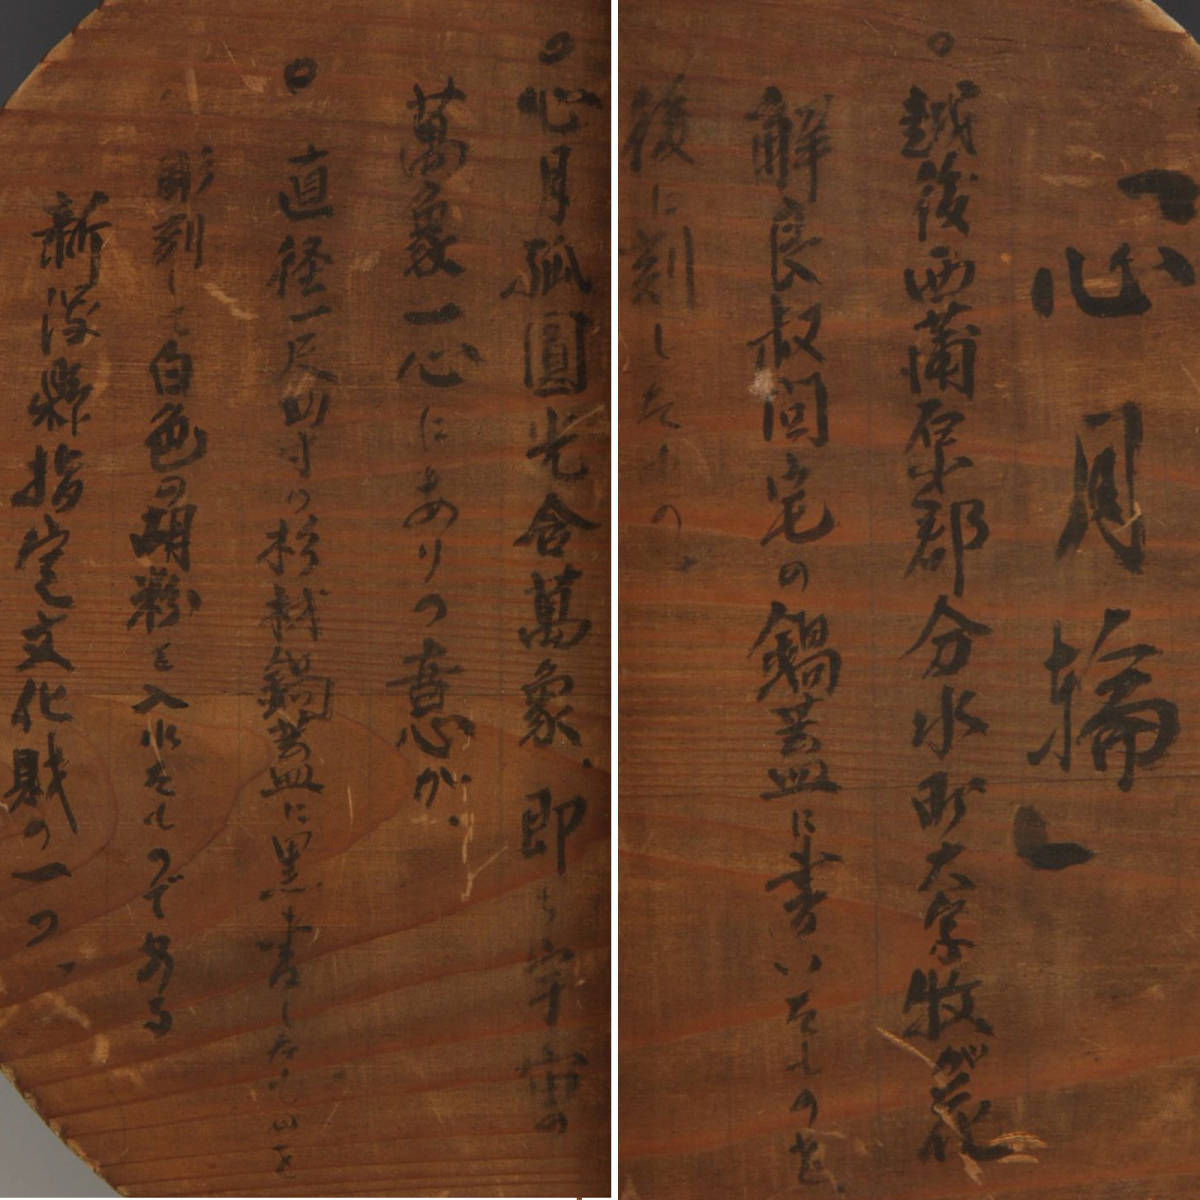 「心月輪」
○越後西蒲原郡分水町大字牧が花
解良叔問宅の鍋蓋に書いたものを
後に刻したもの、
○心月孤圓光含萬象、即ち宇宙の
萬象一心にありの意が、
○直径一尺四寸の杉材鍋蓋に黒書したものを
彫刻して白色の胡粉を入れたものである
新潟県指定文化財の一つ、